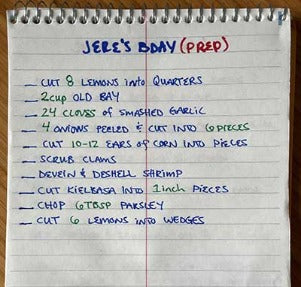 JERE'S BDAY (PREP)
__ CUT 8 LEMONS into QUARTERS
__ 2cup OLD BAY
__ 24 CLOVES of SMASHED GARLIC
__ 4 ONIONS PEELED & CUT INTO 6 PIECES
__ CUT 10-12 EARS of CORN INTO PIECES
__ SCRUB CLAMS
__ DEVEIN & DESHELL SHRIMP
__ CUT KIELBASA INTO 1inch PIECES
__ CHOP 6TBSP PARSLEY
__ CUT 6 LEMONS into WEDGES